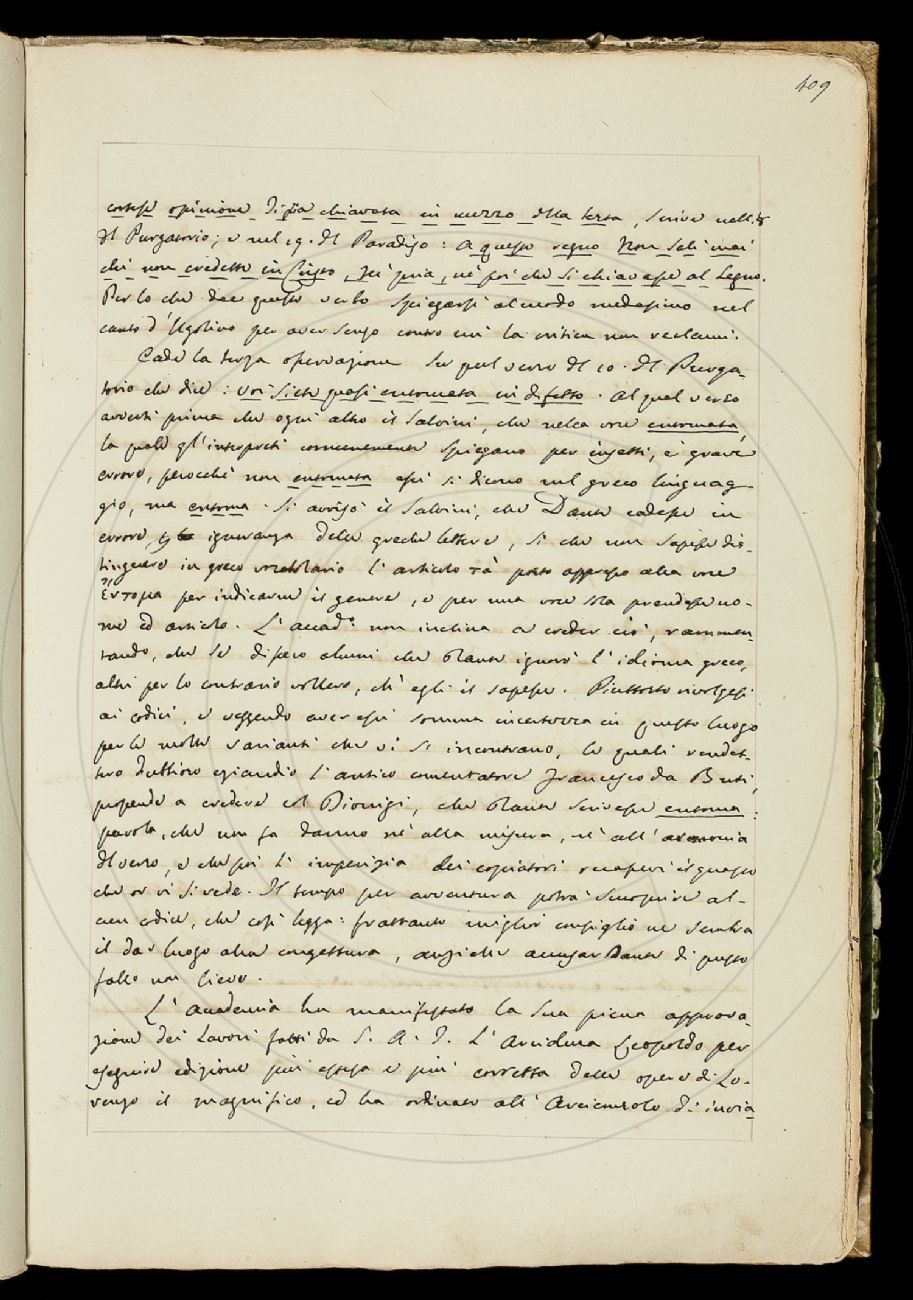 409
cortese opinione Ti fia chiavata in mezzo della testa, scrive nell'8
del Purgatorio; e nel 19. del Paradiso: A questo regno Non salì mai
chi non credette in Cristo, Nè pria, nè poi che si chiavasse al Legno.
Per lo che dee questo verbo spiegarsi al modo medesimo nel
canto d'Ugolino per aver senso contro cui la critica non reclami.
Cade la terza osservazione su quel verso del 10. del Purga-
torio che dice: voi siete quasi entomata in difetto. Al qual verso
avvertì prima che ogni altro il Salvini, che nella voce entomata,
la quale gl'interpreti comunemente spiegano per insetti, è grave
errore, perocchè non entomata essi si dicono nel greco linguag-
gio, ma entoma. Si avvisò il Salvini, che Dante cadesse in
errore ignoranza delle greche lettere, sì che non sapesse dis-
tinguere in greco vocabolario l'articolo τὰ posto appresso alla voce
Ἔντομα per indicarne il genere, e per una voce sola prendesse no-
me ed articolo. L'accad.º non inclina a creder ciò, rammen-
tando, che se dissero alcuni che Dante ignorò l'idioma greco,
altri per lo contrario vollero, ch'egli il sapesse. Piuttosto rivolgesi
ai codici, e veggendo aver essi somma incertezza in questo luogo
per le molte varianti che vi si incontrano, le quali rendet-
tero dubbioso eziandio l'antico comentatore Francesco da Buti,
propende a credere col Dionigi, che Dante scrivesse entoma:
parola, che non fa danno nè alla misura, nè all'armonia
del verso, e che poi l'imperizia dei copiatori
che or vi si vede. Il tempo per avventura potrà scuoprire al-
cun codice, che così legga: frattanto miglior consiglio ne sembra
il dar luogo alla congettura, anzichè accusar Dante di questo
fallo non lieve.
L'Accademia ha manifestato la sua piena approva-
zione dei lavori fatti da S. A. I. L'Arciduca Leopoldo per
eseguire edizione più estesa e più corretta delle opere di Lo-
renzo il magnifico, ed ha ordinato all'Arciconsolo di invia-